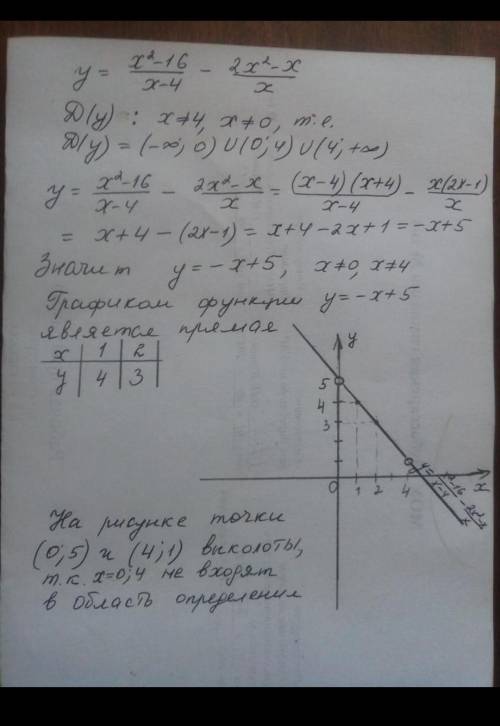 y = (x²-16)/(x-4) - (2x²-x)/x
D(y) : x≠4, x≠0, т.е.
D(y) = (-∞; 0) ∪ (0; 4) ∪ (4; +∞)
y = (x²-16)/(x-4) - (2x²-x)/x = ((x-4)(x+4))/(x-4) - (x(2x-1))/x
= x+4-(2x-1) = x+4-2x+1 = -x+5
Значит y=-x+5, x≠0, x≠4
Графиком функции y=-x+5
является прямая
x | 1 | 2
y | 4 | 3
y
5
4
3
0 1 2 4 x
y = (x²-16)/(x-4) - (2x²-x)/x
На рисунке точки
(0; 5) и (4; 1) выколоты,
т.к. x=0; 4 не входят
в область определения